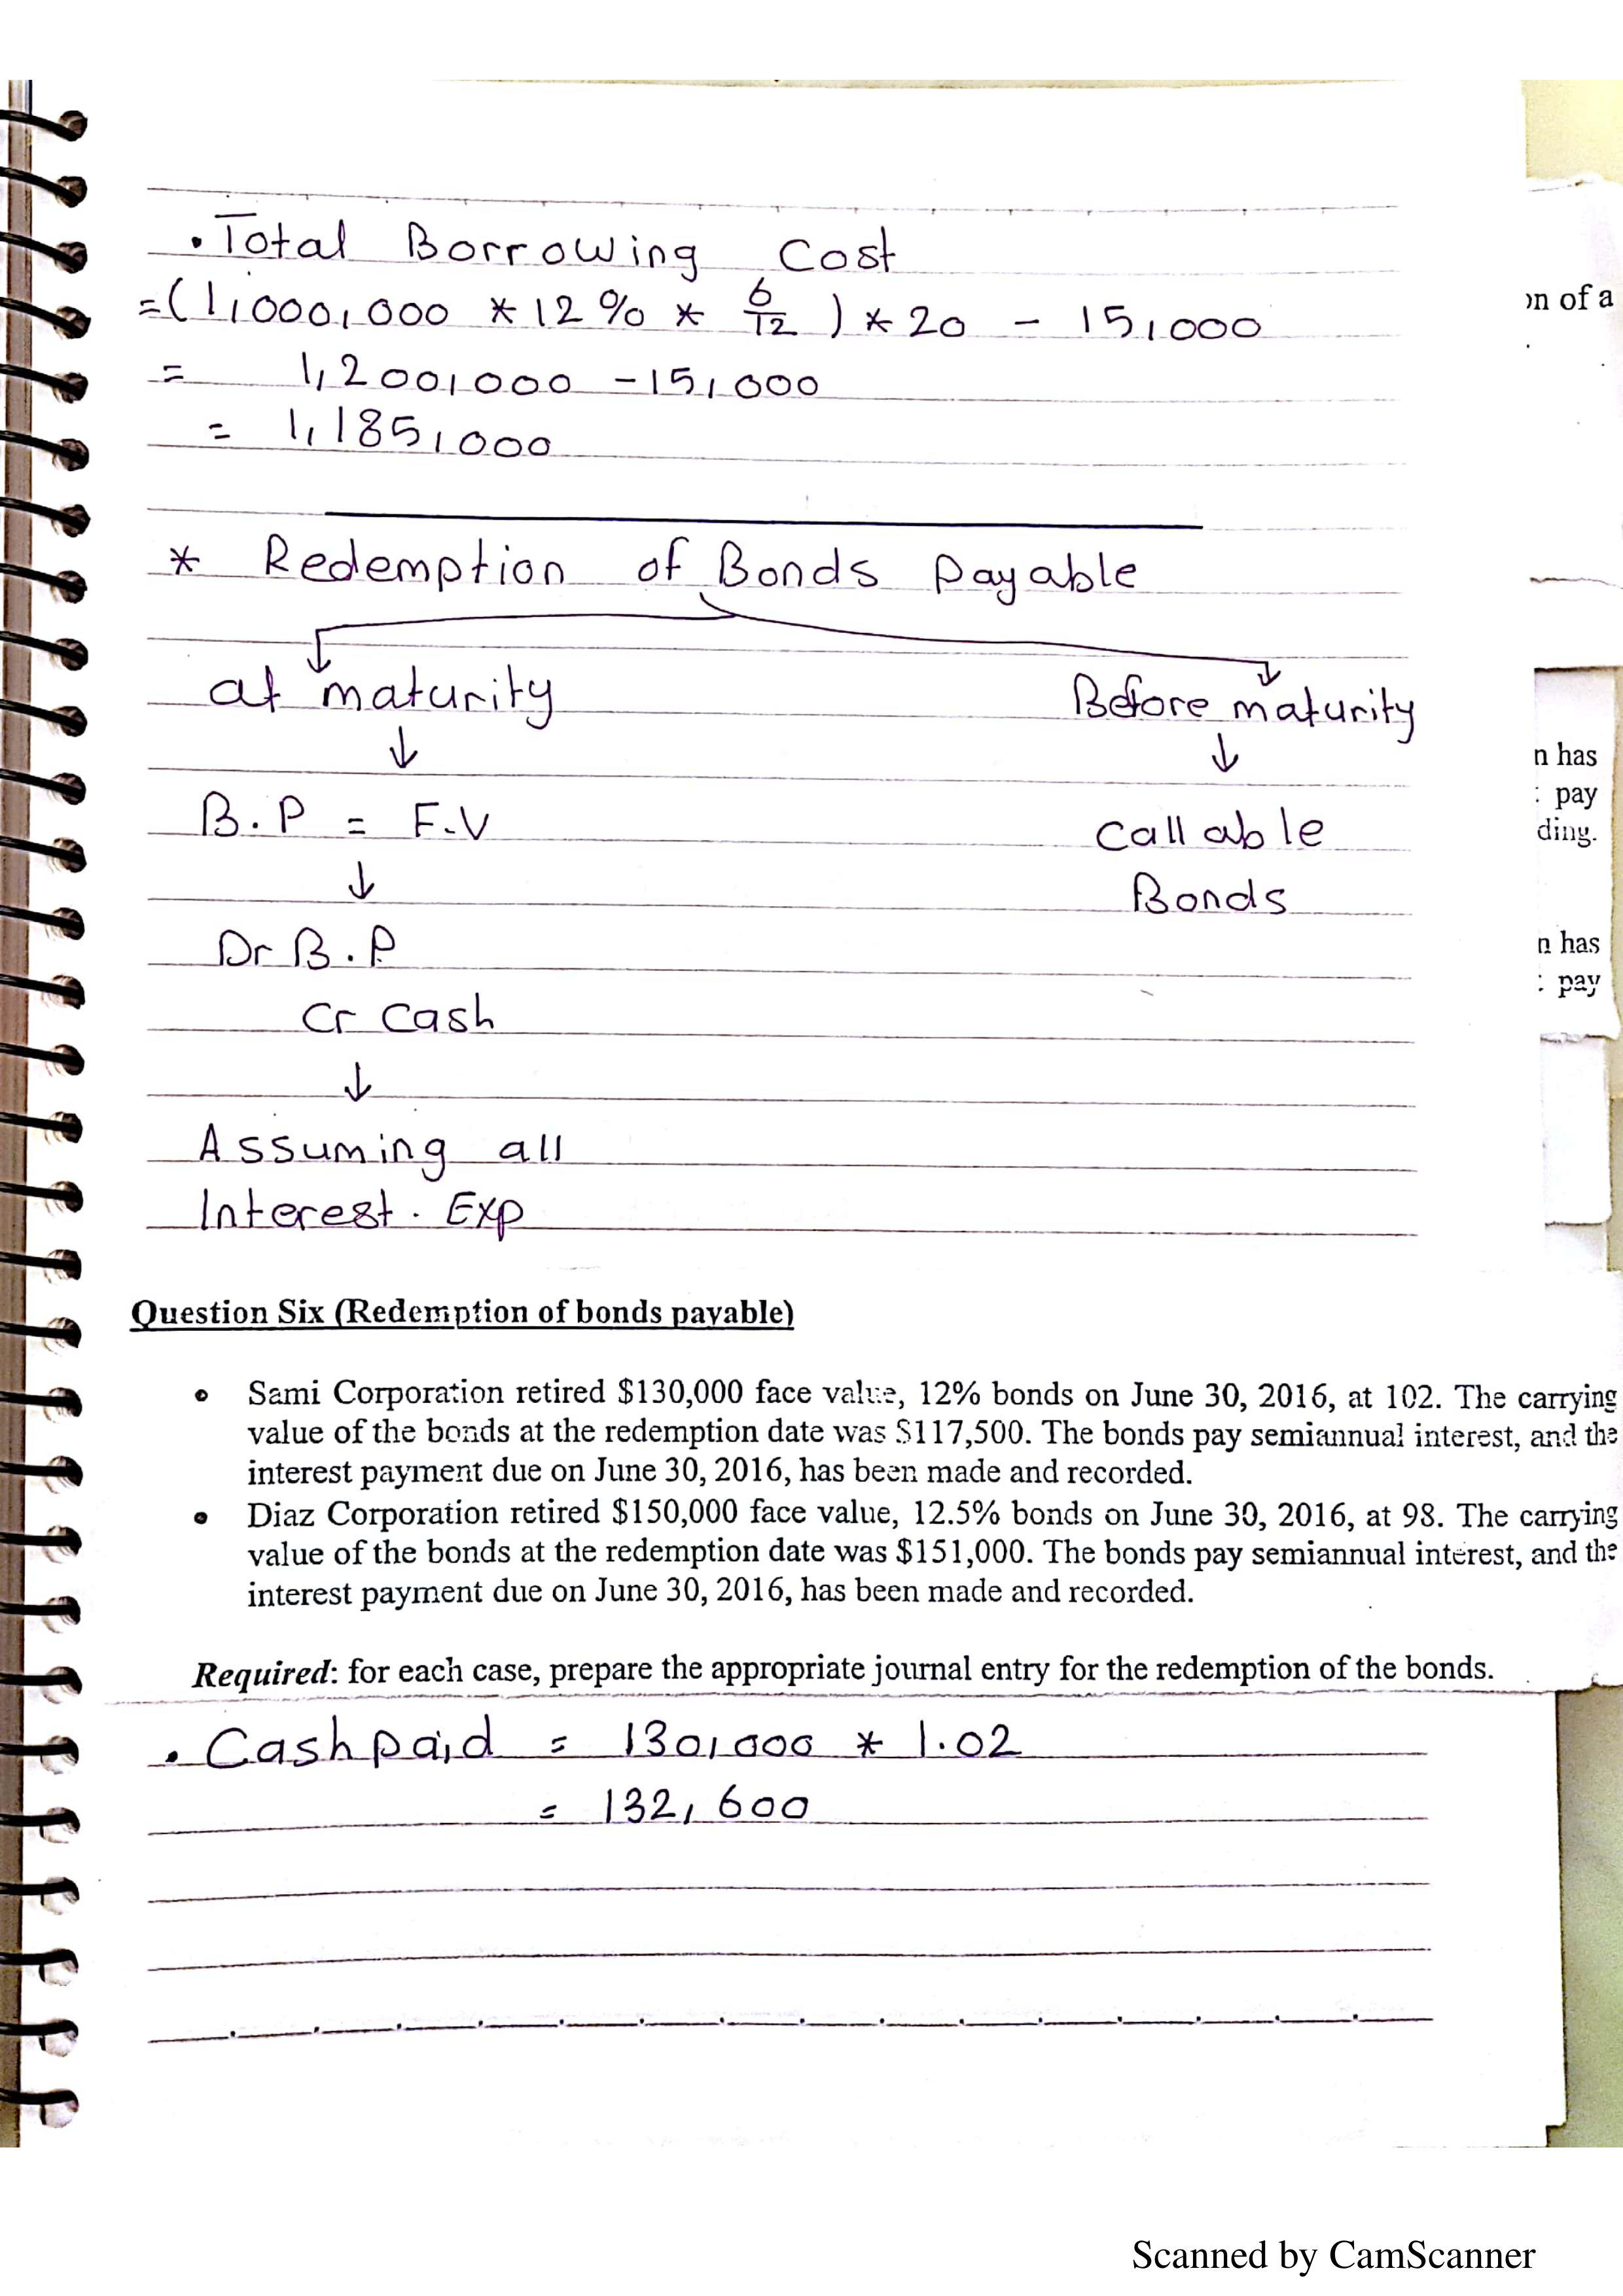 • Total Borrowing Cost
= (1,000,000 * 12% * 6/12) * 20 - 15,000
= 1,200,000 - 15,000
= 1,185,000
* Redemption of Bonds Payable
at maturity Before maturity
↓ ↓
B.P = F.V Callable
↓ Bonds
Dr B.P
Cr Cash
↓
Assuming all
Interest. Exp
on of a
n has
: pay
ding.
n has
: pay
Question Six (Redemption of bonds payable)
• Sami Corporation retired $130,000 face value, 12% bonds on June 30, 2016, at 102. The carrying
value of the bonds at the redemption date was $117,500. The bonds pay semiannual interest, and the
interest payment due on June 30, 2016, has been made and recorded.
• Diaz Corporation retired $150,000 face value, 12.5% bonds on June 30, 2016, at 98. The carrying
value of the bonds at the redemption date was $151,000. The bonds pay semiannual interest, and the
interest payment due on June 30, 2016, has been made and recorded.
Required: for each case, prepare the appropriate journal entry for the redemption of the bonds.
• Cash paid = 130,000 * 1.02
= 132,600
Scanned by CamScanner